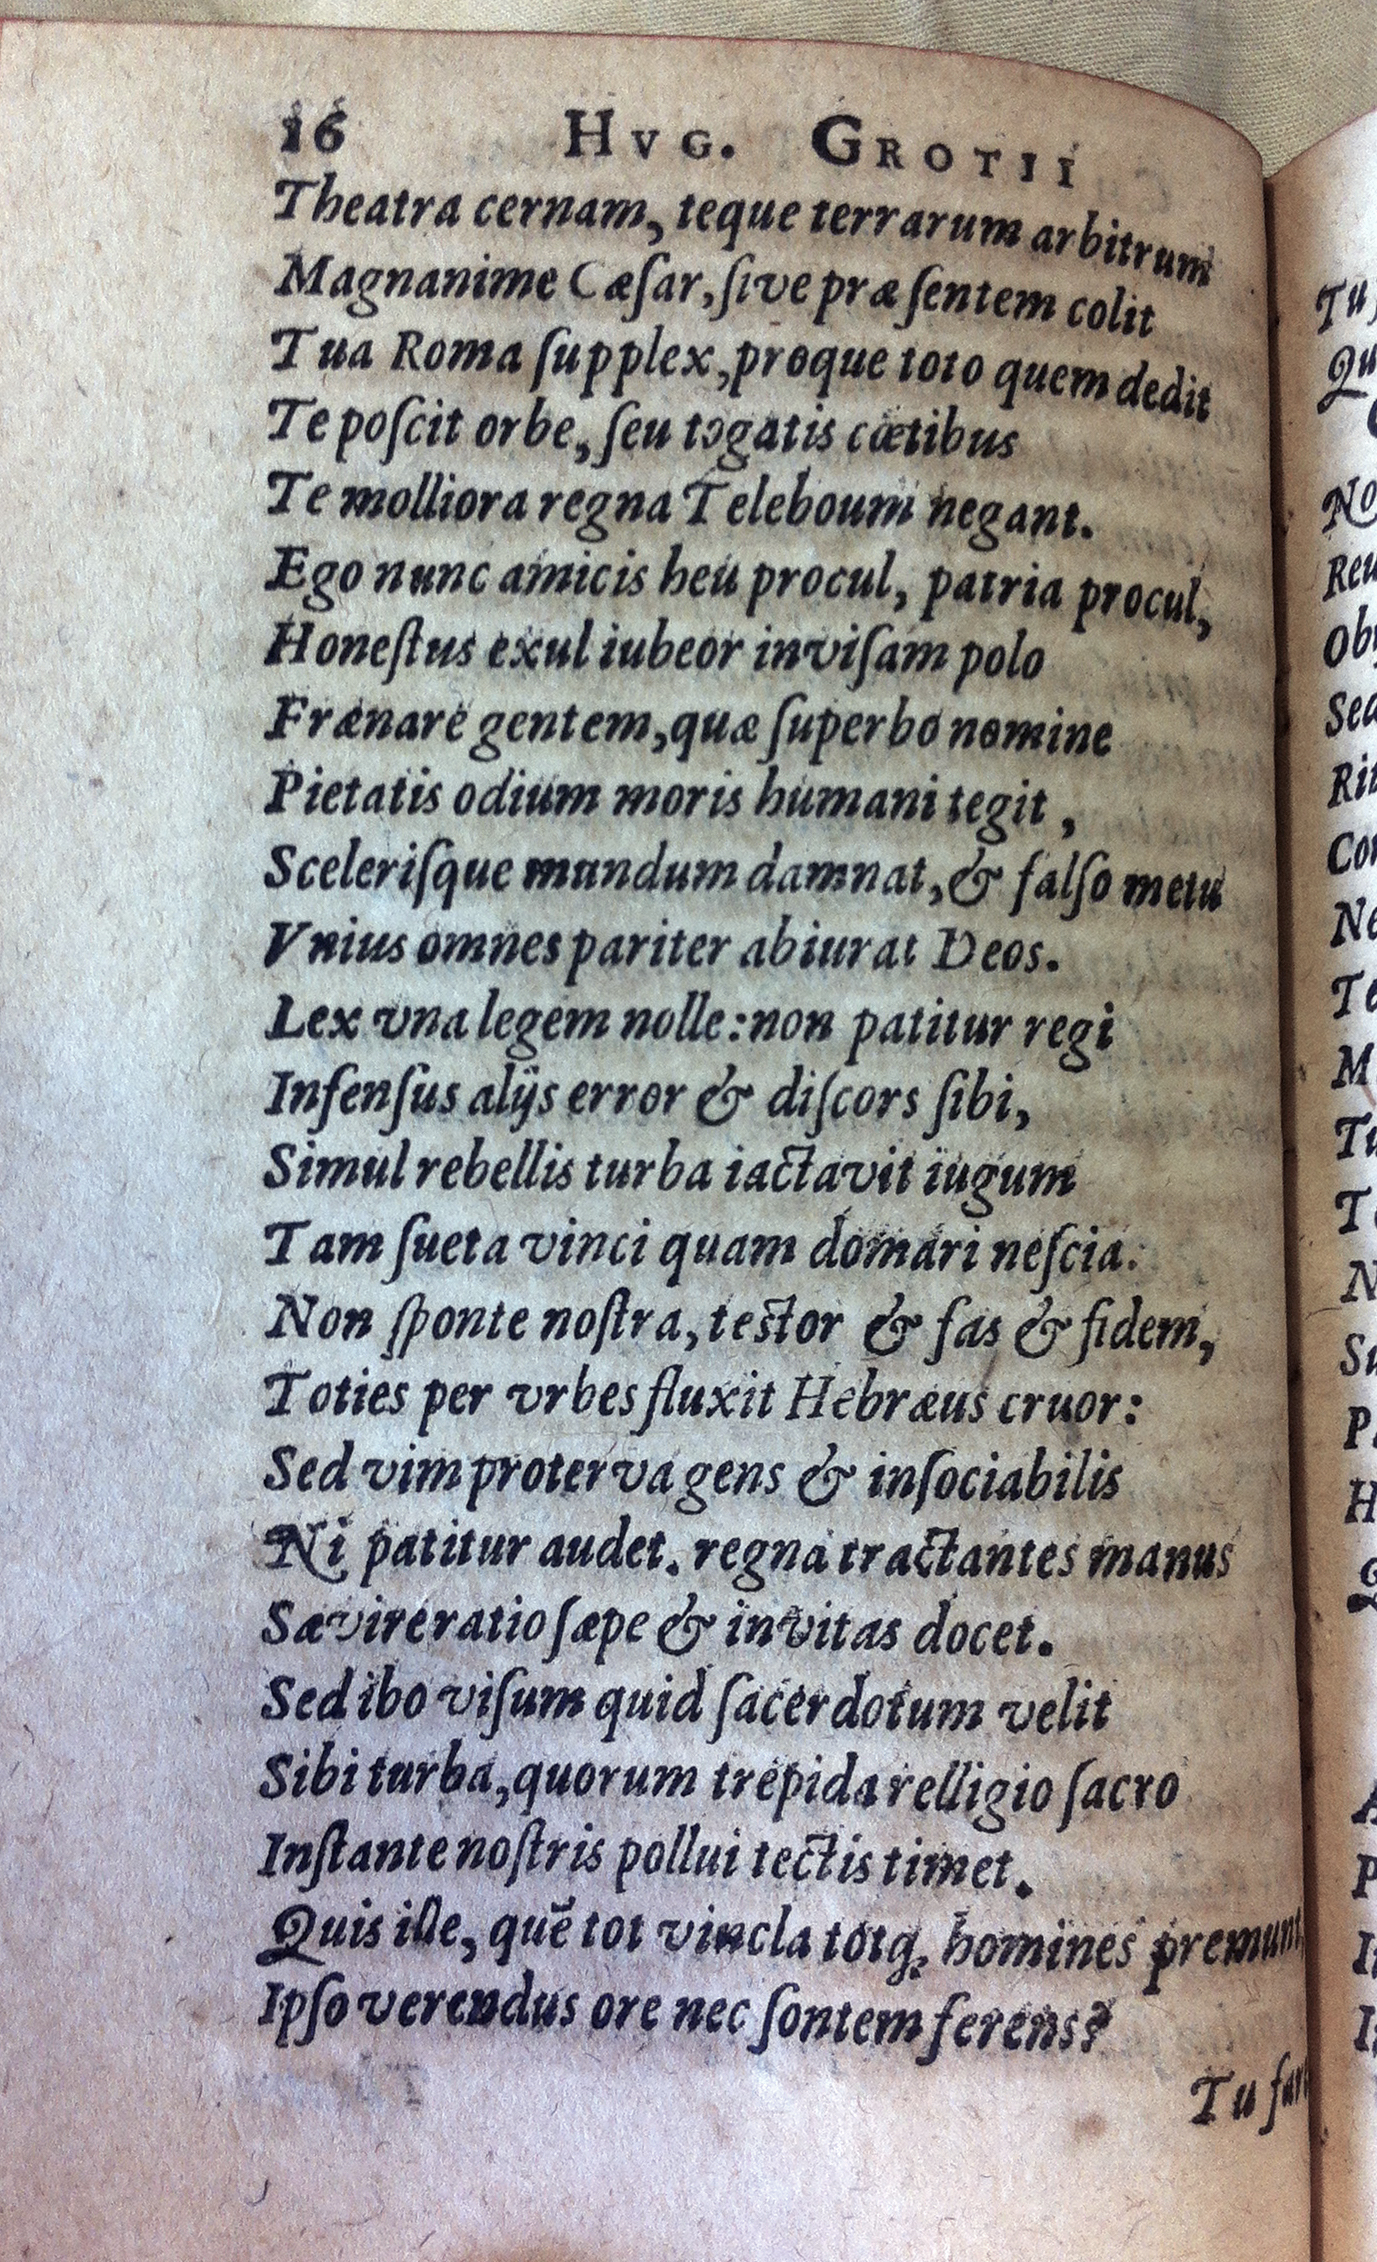 16 HVG. GROTII
Theatra cernam, teque terrarum arbitrum
Magnanime Cæſar, ſive præſentem colit
Tua Roma ſupplex, proque toto quem dedit
Te poſcit orbe, ſeu togatis cœtibus
Te molliora regna Teleboum negant.
Ego nunc amicis heu procul, patria procul,
Honeſtus exul iubeor inviſam polo
Frænare gentem, quæ ſuperbo nomine
Pietatis odium moris humani tegit,
Sceleriſque mundum damnat, & falſo metu
Vnius omnes pariter abiurat Deos.
Lex vna legem nolle: non patitur regi
Infenſus alijs error & diſcors ſibi,
Simul rebellis turba iactavit iugum
Tam ſueta vinci quam domari neſcia.
Non ſponte noſtra, teſtor & fas & fidem,
Toties per vrbes fluxit Hebræus cruor:
Sed vim proterva gens & inſociabilis
Ni patitur audet. regna tractantes manus
Sævire ratio ſæpe & invitas docet.
Sed ibo viſum quid ſacerdotum velit
Sibi turba, quorum trepida relligio ſacro
Inſtante noſtris pollui tectis timet.
Quis ille, quē tot vincla totq; homines premunt,
Ipſo verendus ore nec ſontem ferens?
Tu
Tu
Qu
No
Reu
Ob
Sed
Rit
Con
Ne
Te
M
Tu
T
N
Su
P
H